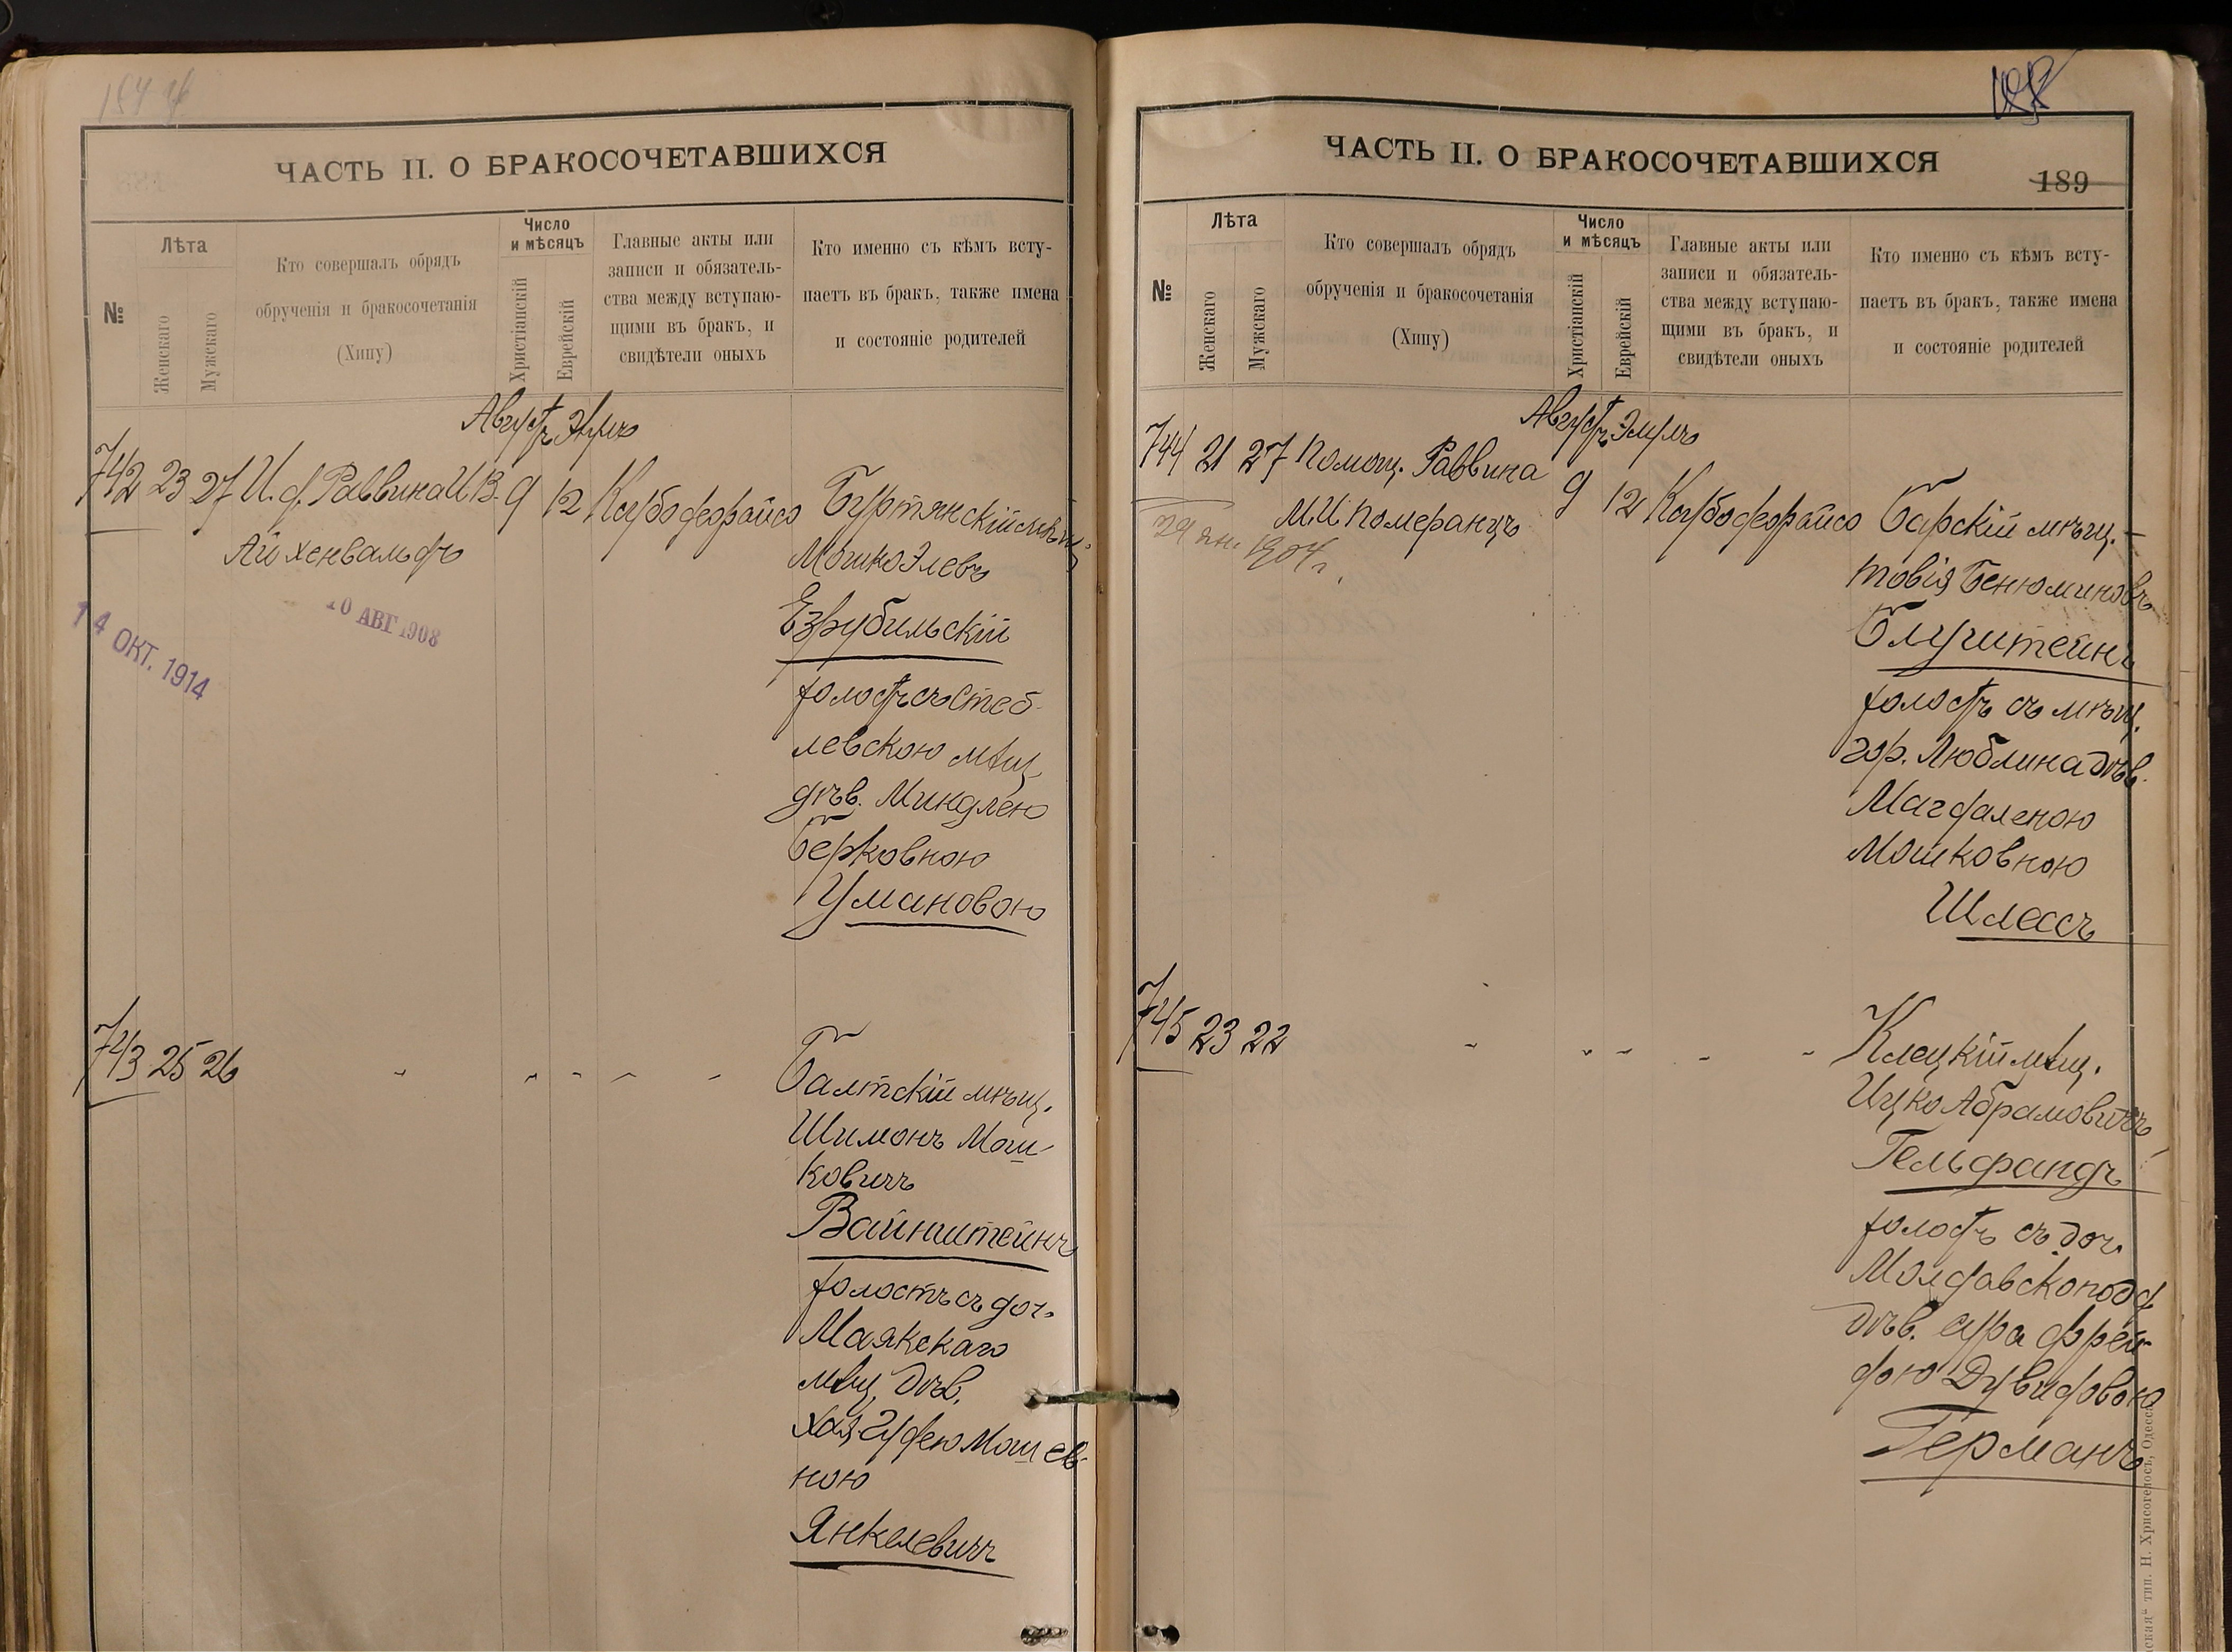 ЧАСТЬ II. О БРАКОСОЧЕТАВШИХСЯ
№
Лѣта
Женскаго
Мужскаго
Кто совершалъ обрядъ
обрученія и бракосочетанія
(Хипу)
Число
и мѣсяцъ
Христіанскій
Еврейскій
Главные акты или
записи и обязатель-
ства между вступаю-
щими въ бракъ, и
свидѣтели оныхъ
Кто именно съ кѣмъ всту-
паетъ въ бракъ, также имена
и состояніе родителей
Августъ Элулъ
742 23 27 И. д. Раввина И. В. 9 12
Айхенвальдъ
10 АВГ 1908
14 ОКТ. 1914
Мошко Элевъ
Езрубильскій
холостъ съ Стеб-
левскою мѣщ.
дѣв. Миндлею
Берковною
Умановою
743 25 26 " " " " "
Балтскій мѣщ.
Шимонъ Мош-
ковичъ
Вайнштейнъ
холостъ съ доч.
Маякскаго
мѣщ. дѣв.
Мошев-
ною
Янкелевичъ
ЧАСТЬ II. О БРАКОСОЧЕТАВШИХСЯ
189
№
Лѣта
Женскаго
Мужскаго
Кто совершалъ обрядъ
обрученія и бракосочетанія
(Хипу)
Число
и мѣсяцъ
Христіанскій
Еврейскій
Главные акты или
записи и обязатель-
ства между вступаю-
щими въ бракъ, и
свидѣтели оныхъ
Кто именно съ кѣмъ всту-
паетъ въ бракъ, также имена
и состояніе родителей
Августъ Элулъ
744 21 27 Помощ. Раввина 9 12
М. И. Померанцъ
29 янв. 1904 г.
Барскій мѣщ. -
Товія Бенюминовъ
Блуштейнъ
холостъ съ мѣщ.
гор. Люблина дѣв.
Магдаленою
Мошковною
Шлессъ
745 23 22 " " " " "
Клецкій мѣщ.
Ицко Абрамовичъ
Гельфандъ
холостъ съ доч.
Молдавскоподд.
дѣв. Сура Фрей-
дою Дувидовою
Германъ
тип. Н. Хрисогелосъ, Одесса